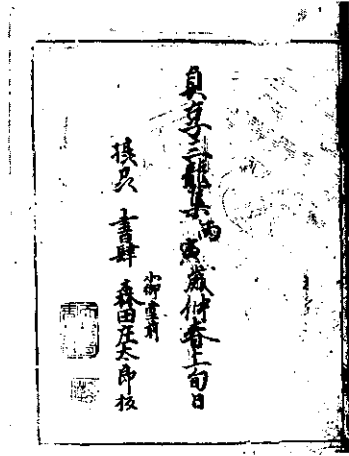 貞享三龍集丙寅歳仲春上旬日
摂衆 書肆 北御堂前 森田庄太郎板